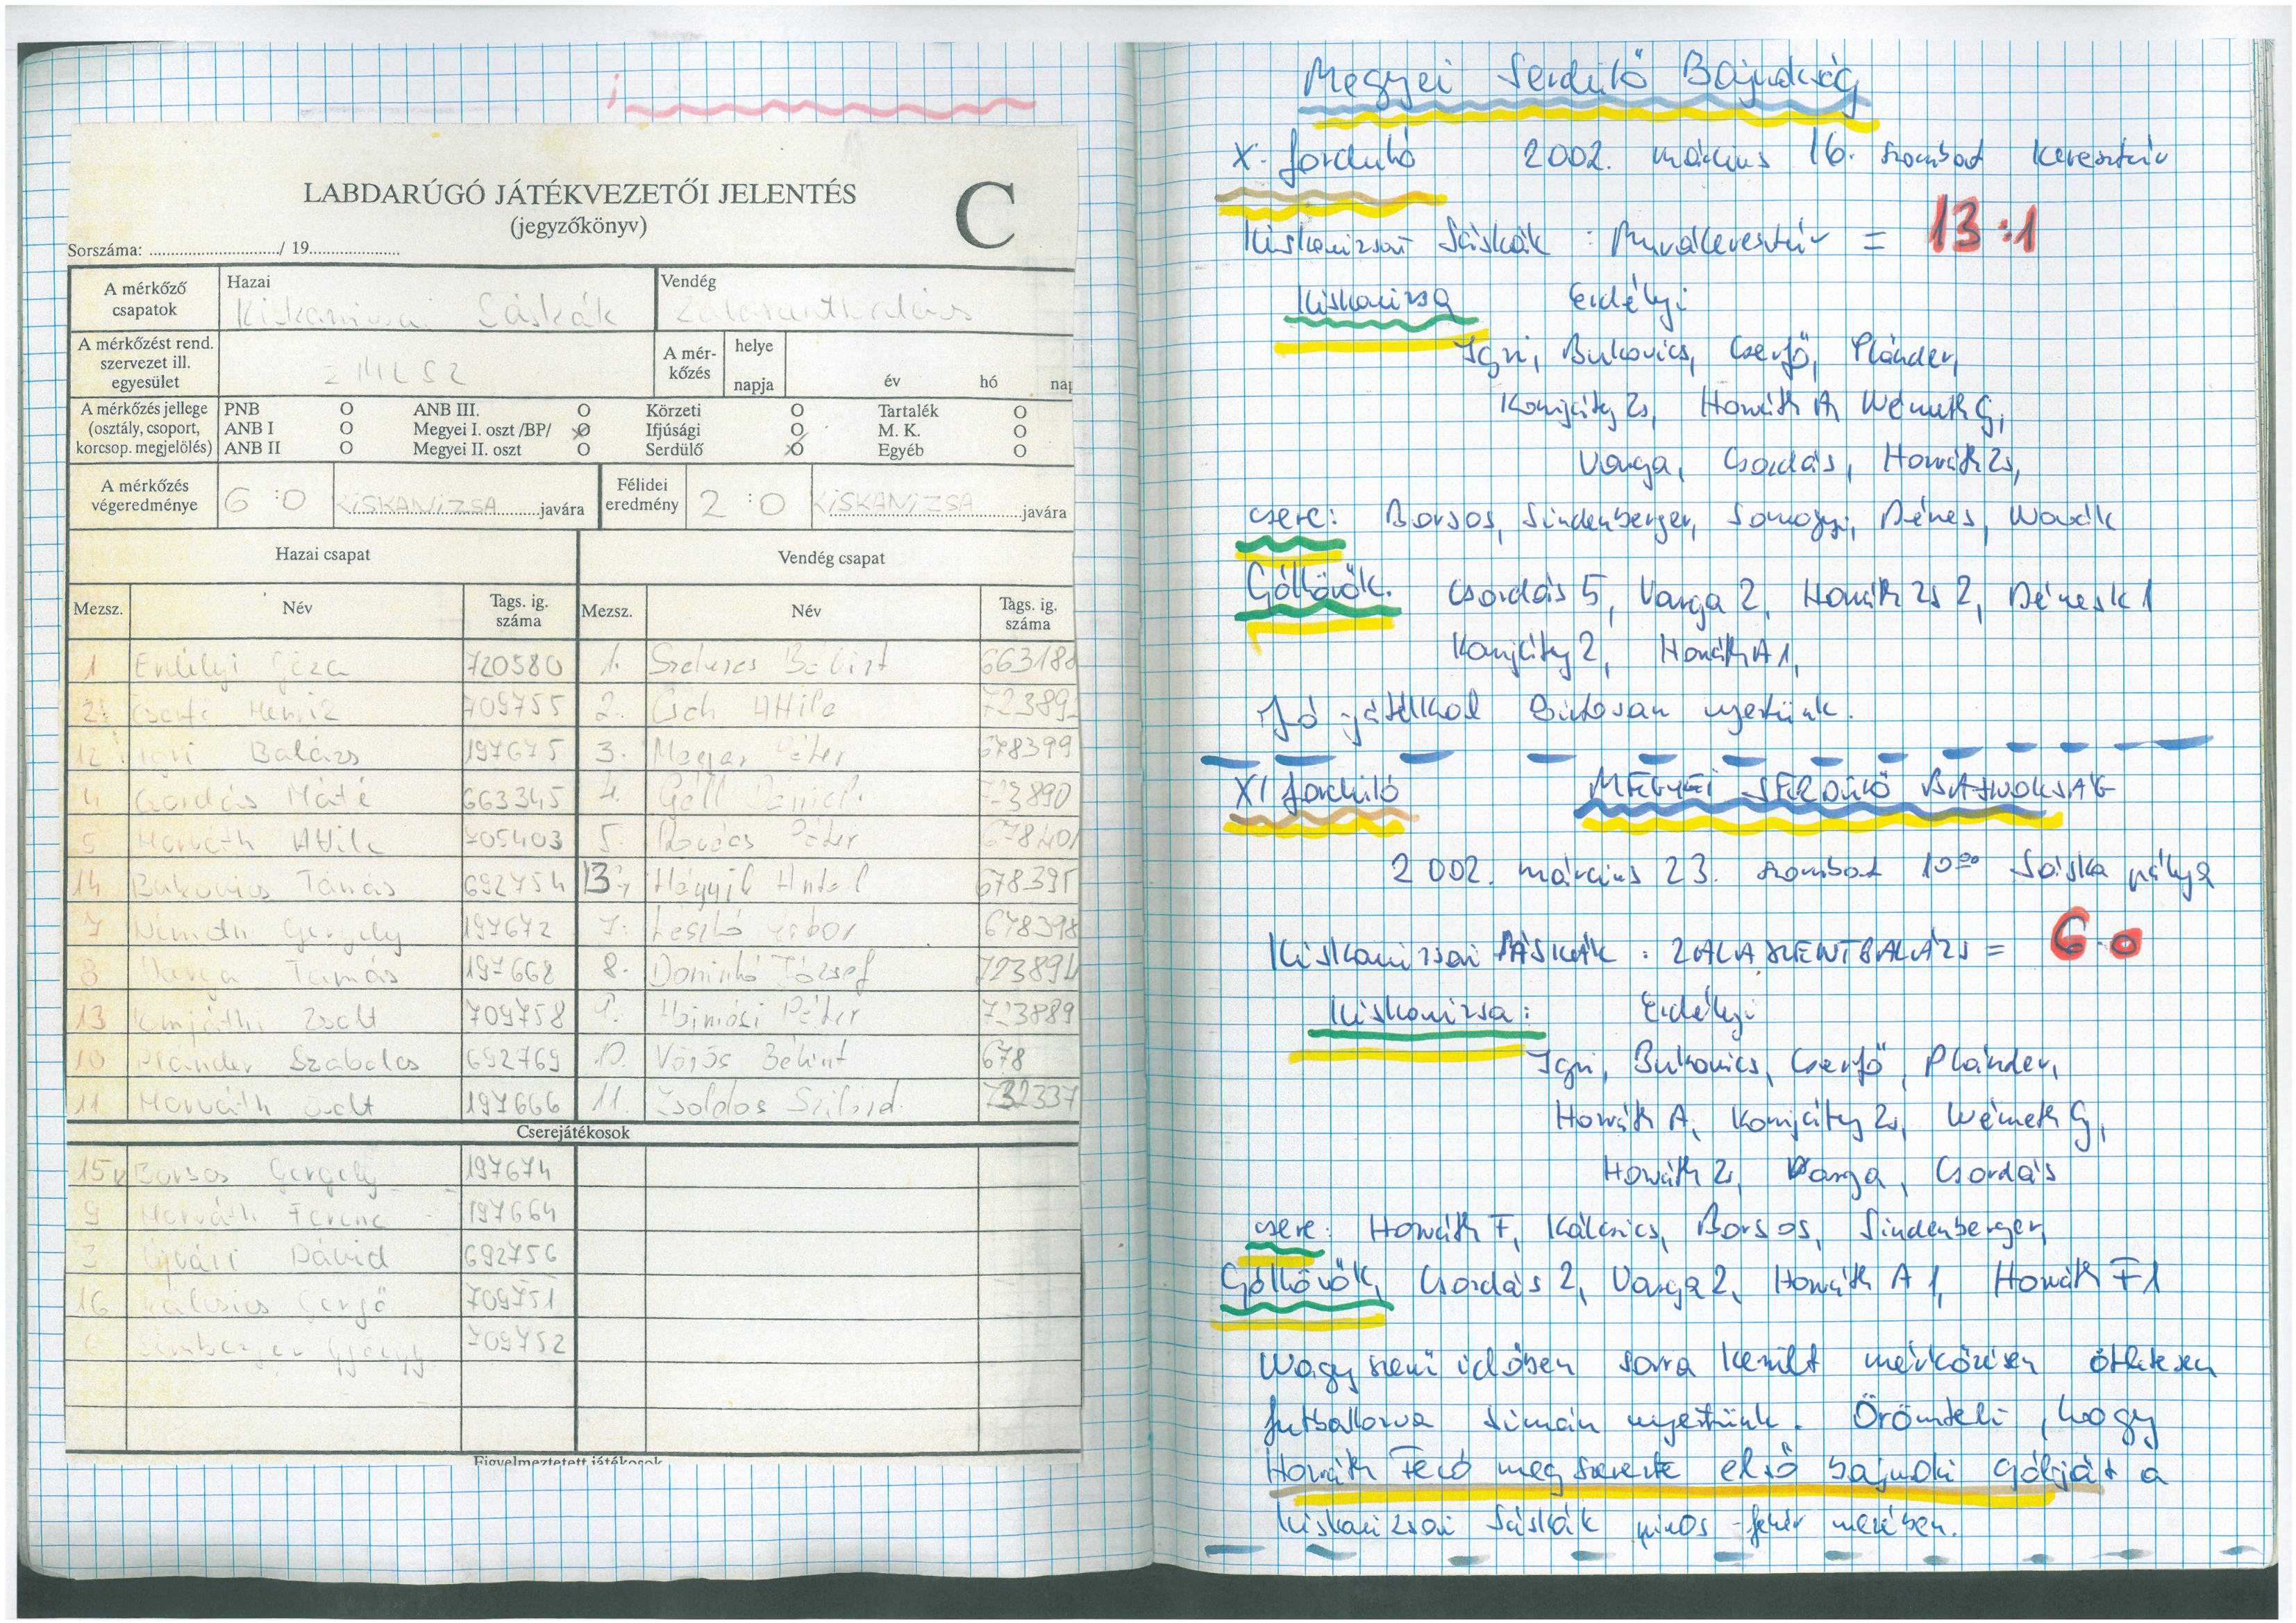 LABDARÚGÓ JÁTÉKVEZETŐI JELENTÉS
(jegyzőkönyv)
C
Sorszáma: ............................../ 19....................
A mérkőző csapatok
Hazai
Kiskanizsai Sáskák
Vendég
Zalaszentbalázs
A mérkőzést rend. szervezet ill. egyesület
ZMLSZ
A mér-kőzés
helye
napja
év hó nap
A mérkőzés jellege (osztály, csoport, korcsop. megjelölés)
PNB O ANB III. O Körzeti O Tartalék O
ANB I O Megyei I. oszt /BP/ O Ifjúsági O M. K. O
ANB II O Megyei II. oszt O Serdülő O Egyéb O
A mérkőzés végeredménye
6 :0 KISKANIZSA javára
Félidei eredmény
2 :0 KISKANIZSA javára
Hazai csapat Vendég csapat
Mezsz. Név Tags. ig. száma Mezsz. Név Tags. ig. száma
1 Erdélyi Géza 720580 1. Szekeres Bálint 663188
2 709755 2. Cseh Attila 72389
12 Igri Balázs 197675 3. Magyar Péter 678399
4 Csordás Máté 663345 4. Gáll Dániel 723890
5 Horváth Attila 705403 5. Kovács Péter 678401
14 Bukovics Tamás 692754 13. Antal 678395
7 Németh Gergely 197672 7. László Gábor 678398
8 Varga Tamás 197668 8. Dominkó József 723891
13 Komjáthi Zsolt 709758 9. Péter 723889
10 Plánder Szabolcs 692769 10. Vörös Bálint 678
11 Horváth Zsolt 197666 11. Zsoldos Szilárd 732337
Cserejátékosok
15 Borsos Gergely 197674
9 Horváth Ferenc 197664
3 Dávid 692756
16 Kálcsics Gergő 709751
6 György 709752
Figyelmeztetett játékosok
Megyei Serdülő Bajnokság
X. forduló 2002. március 16. szombat Keresztúr
Kiskanizsai Sáskák : Murakeresztúr = 13:1
Kiskanizsa Erdélyi
Igri, Bukovics, Cserfő, Plánder,
Komjáty Zs, Horváth A, Németh G,
Varga, Csordás, Horváth Zs,
csere: Borsos, Sindenberger, Somogyi, Dénes, Novák
Góllövők. Csordás 5, Varga 2, Horváth Zs 2, Dénes K 1
Komjáty 2, Horváth A 1,
Jó játékkal biztosan nyertünk.
XI forduló MEGYEI SERDÜLŐ BAJNOKSÁG
2002. március 23. szombat 10⁰⁰ Sáska pálya
Kiskanizsai SÁSKÁK : ZALASZENTBALÁZS = 6:0
Kiskanizsa: Erdélyi
Igri, Bukovics, Cserfő, Plánder,
Horváth A, Komjáty Zs, Németh G,
Horváth Zs, Varga, Csordás
csere: Horváth F, Kálcsics, Borsos, Sindenberger,
Góllövők, Csordás 2, Varga 2, Horváth A 1, Horváth F 1
Nagy szerű időben sorra került mérkőzésen ötletesen
futballozva simán nyertünk. Örömteli, hogy
Horváth Fecó megszerezte első bajnoki gólját a
Kiskanizsai Sáskák piros - fehér mezében.